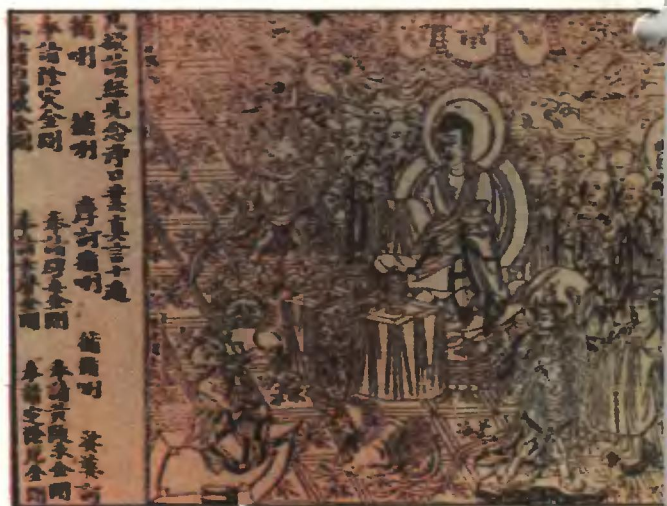 凡欲讀經先念淨口業真言一遍
脩唎 脩唎 摩訶脩唎 脩脩唎
奉請除災金剛 奉請辟毒金剛 奉請黃隨求金剛
奉請 金剛 奉請 金剛 奉請定除災金剛